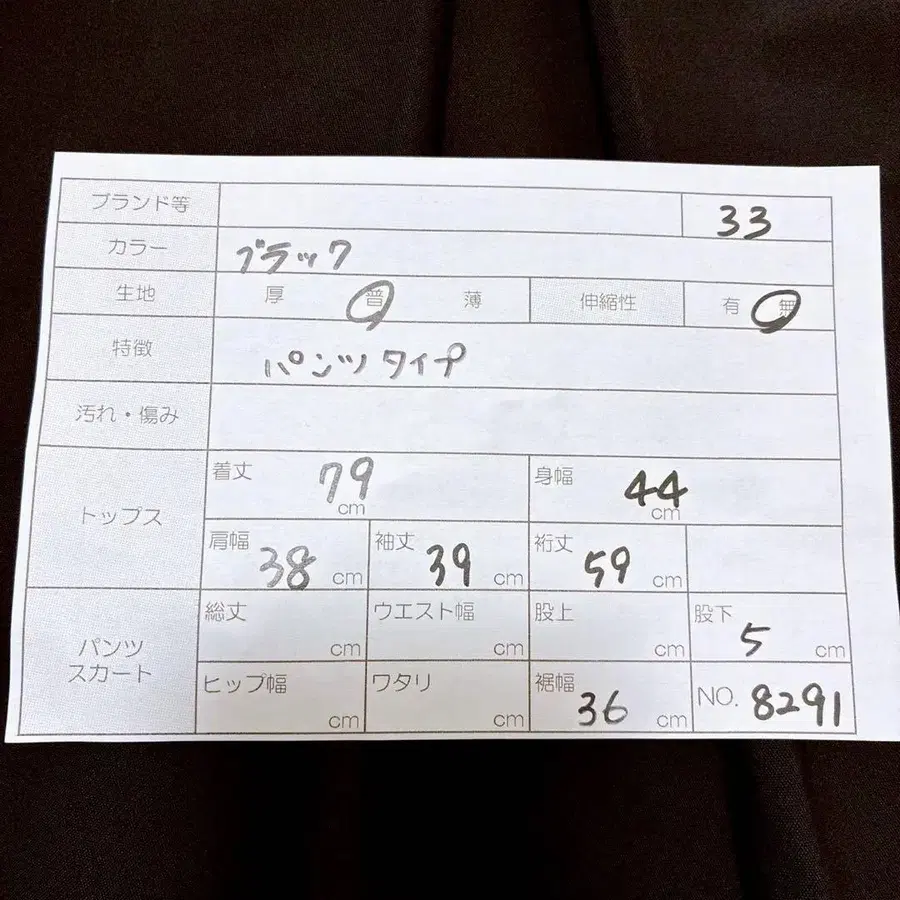 ブランド等 33
カラー ブラック
生地 厚 普 薄 伸縮性 有 無
特徴 パンツタイプ
汚れ・傷み
トップス
着丈 79 cm 身幅 44 cm
肩幅 38 cm 袖丈 39 cm 裄丈 59 cm
パンツ
スカート
総丈 cm ウエスト幅 cm 股上 cm 股下 5 cm
ヒップ幅 cm ワタリ cm 裾幅 36 cm NO. 8291